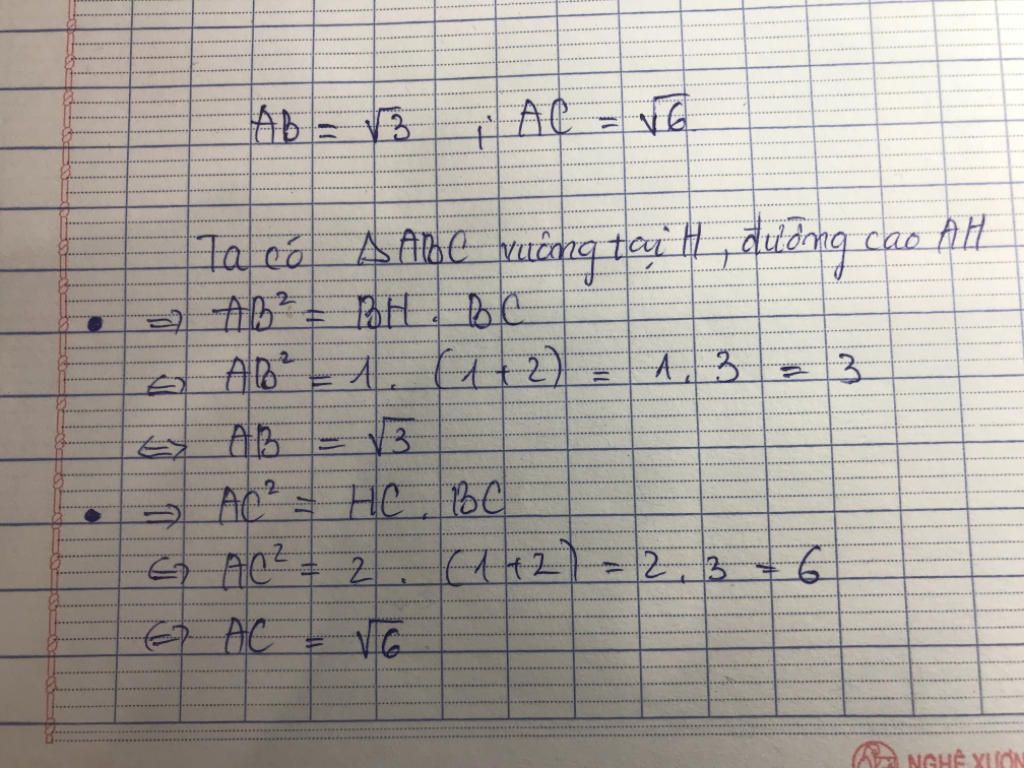 AB = √3 ; AC = √6
Ta có Δ ABC vuông tại H, đường cao AH
• ⇒ AB² = BH . BC
⇔ AB² = 1 . (1 + 2) = 1 . 3 = 3
⇔ AB = √3
• ⇒ AC² = HC . BC
⇔ AC² = 2 . (1 + 2) = 2 . 3 = 6
⇔ AC = √6
NGHỆ XƯƠN